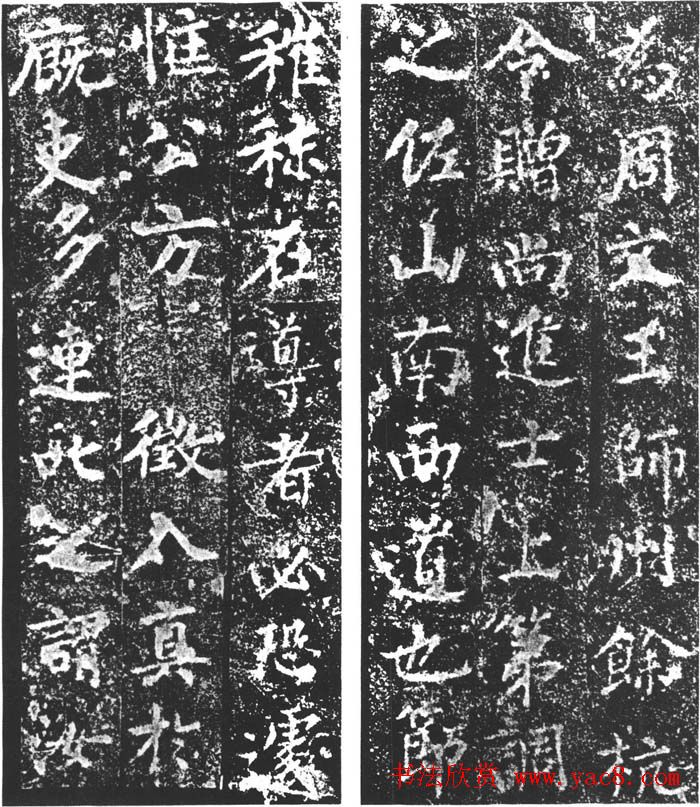 為周文王師州餘杭
令贈尚進士上第調
之佐山南西道也節
稚秫在導者必恐
公方徵入真於
廄吏多連叱之謂汝
书法欣赏 www.yac8.com